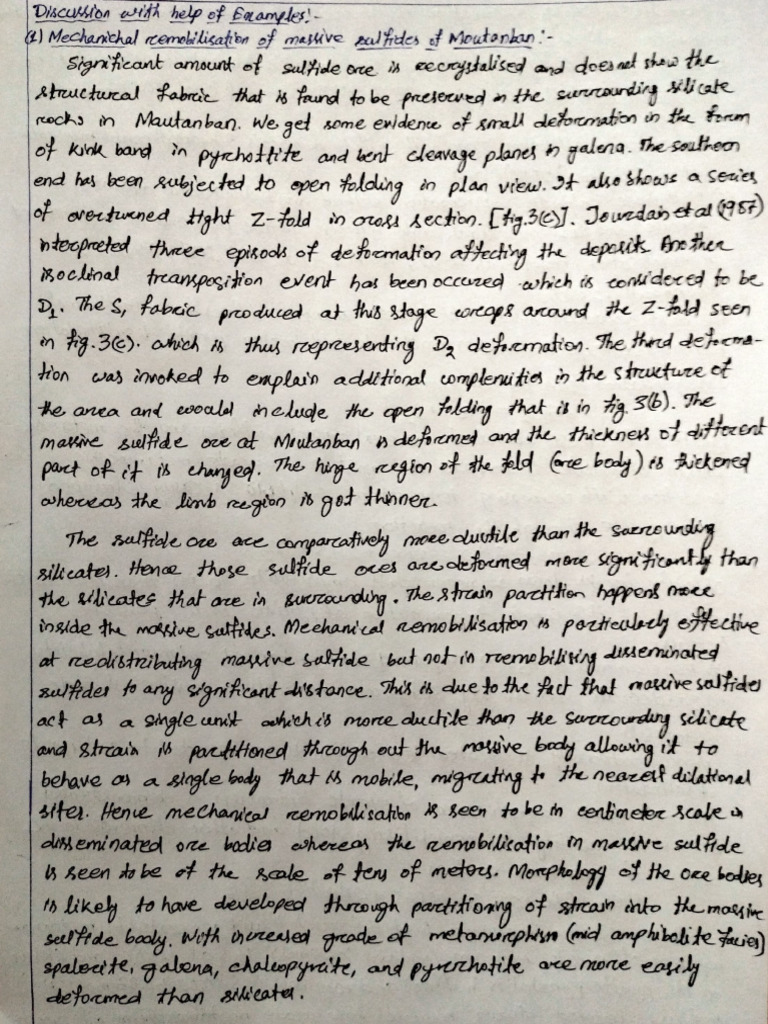 Discussion with help of Examples:-
(1) Mechanichal remobilisation of massive sulfides of Moutanban:-
Significant amount of sulfide ore is recrystalised and does not show the
structural fabric that is found to be preserved in the surrounding silicate
rocks in Mautanban. We get some evidence of small deformation in the form
of kink band in pyrrhottite and bent cleavage planes in galena. The southern
end has been subjected to open folding in plan view. It also shows a series
of overturned tight Z-fold in cross section. [fig.3(c)]. Jourdain et al (1987)
interpreted three episods of deformation affecting the deposits. Another
isoclinal transposition event has been occured which is considered to be
D1. The S, fabric produced at this stage wraps around the Z-fold seen
in fig.3(c). which is thus representing D2 deformation. The third deforma-
tion was invoked to explain additional complexities in the structure of
the area and would include the open folding that is in fig. 3(b). The
massive sulfide ore at Moutanban is deformed and the thickness of different
part of it is changed. The hinge region of the fold (ore body) is thickened
whereas the limb region is got thinner.
The sulfide ore are comparatively more ductile than the sorrounding
silicates. Hence these sulfide ores are deformed more significantly than
the silicates that are in surrounding. The strain partition happens more
inside the massive sulfides. Mechanical remobilisation is particularly effective
at redistributing massive sulfide but not in remobilising disseminated
sulfides to any significant distance. This is due to the fact that massive sulfides
act as a single unit which is more ductile than the surrounding silicate
and strain is partitioned through out the massive body allowing it to
behave as a single body that is mobile, migrating to the nearest dilational
sites. Hence mechanical remobilisation is seen to be in centimeter scale in
disseminated ore bodies whereas the remobilisation in massive sulfide
is seen to be of the scale of tens of meters. Morphology of the ore bodies
is likely to have developed through partitioning of strain into the massive
sulfide body. With increased grade of metamorphism (mid amphibolite facies)
spalerite, galena, chalcopyrite, and pyrrhotite are more easily
deformed than silicates.